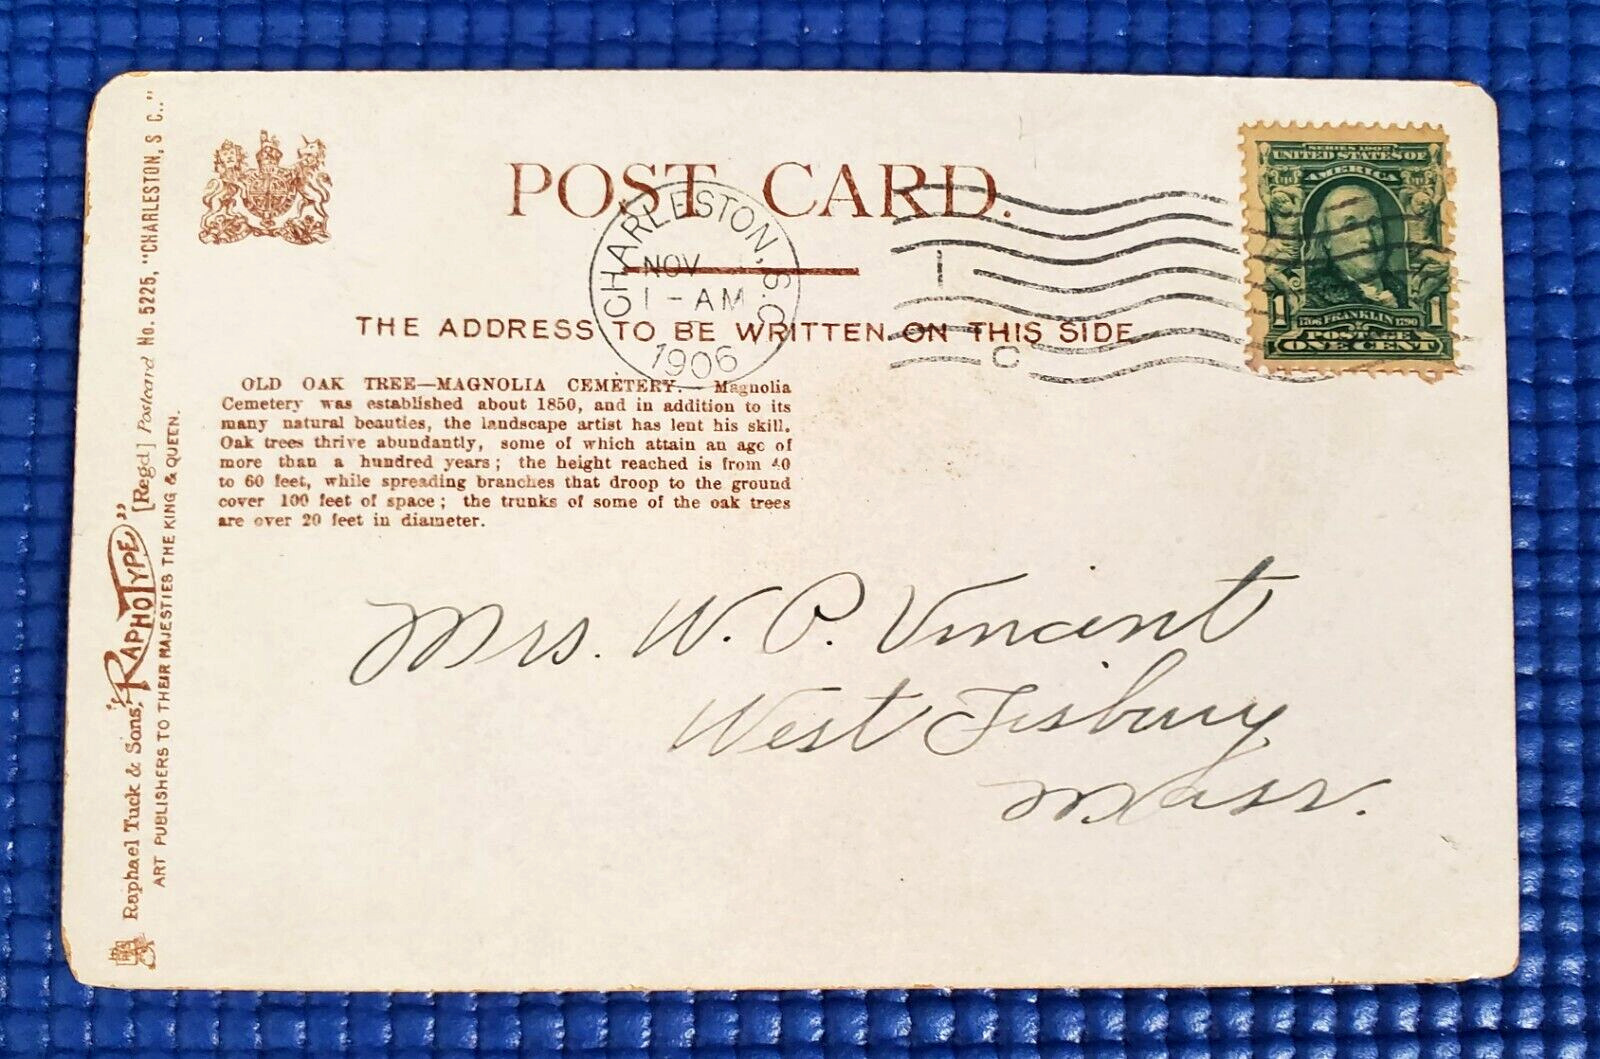 POST CARD.
CHARLESTON, S.C.
NOV
1 - AM
1906
1
C
SERIES 1902
UNITED STATES OF
AMERICA
1706 FRANKLIN 1790
1 1
POSTAGE
ONE CENT
THE ADDRESS TO BE WRITTEN ON THIS SIDE
OLD OAK TREE—MAGNOLIA CEMETERY.— Magnolia
Cemetery was established about 1850, and in addition to its
many natural beauties, the landscape artist has lent his skill.
Oak trees thrive abundantly, some of which attain an age of
more than a hundred years; the height reached is from 40
to 60 feet, while spreading branches that droop to the ground
cover 100 feet of space; the trunks of some of the oak trees
are over 20 feet in diameter.
Mrs. W. P. Vincent
West Tisbury
Mass.
Raphael Tuck & Sons, "RAPHOTYPE" [Regd] Postcard No. 5225, "CHARLESTON, S C.."
ART PUBLISHERS TO THEIR MAJESTIES THE KING & QUEEN.